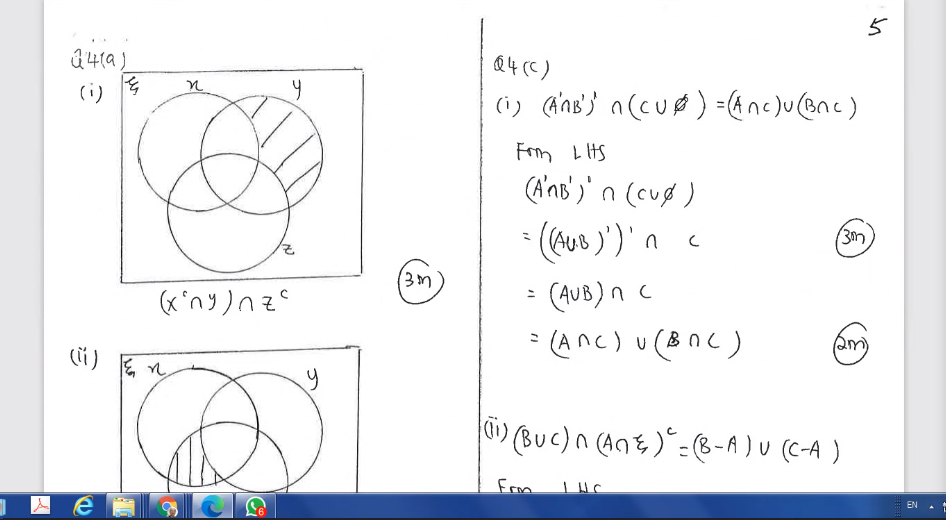 5
Q4(a)
(i)
ξ x y
z
(x^c ∩ y) ∩ z^c
3m
(ii)
ξ x y
Q4(c)
(i) (A'∩B')' ∩ (C∪∅) = (A∩C)∪(B∩C)
From LHS
(A'∩B')' ∩ (C∪∅)
= ((A∪B)')' ∩ C
3m
= (A∪B) ∩ C
= (A∩C) ∪ (B∩C)
2m
(ii) (B∪C) ∩ (A∩ξ)^c = (B-A) ∪ (C-A)
From LHS
6
EN